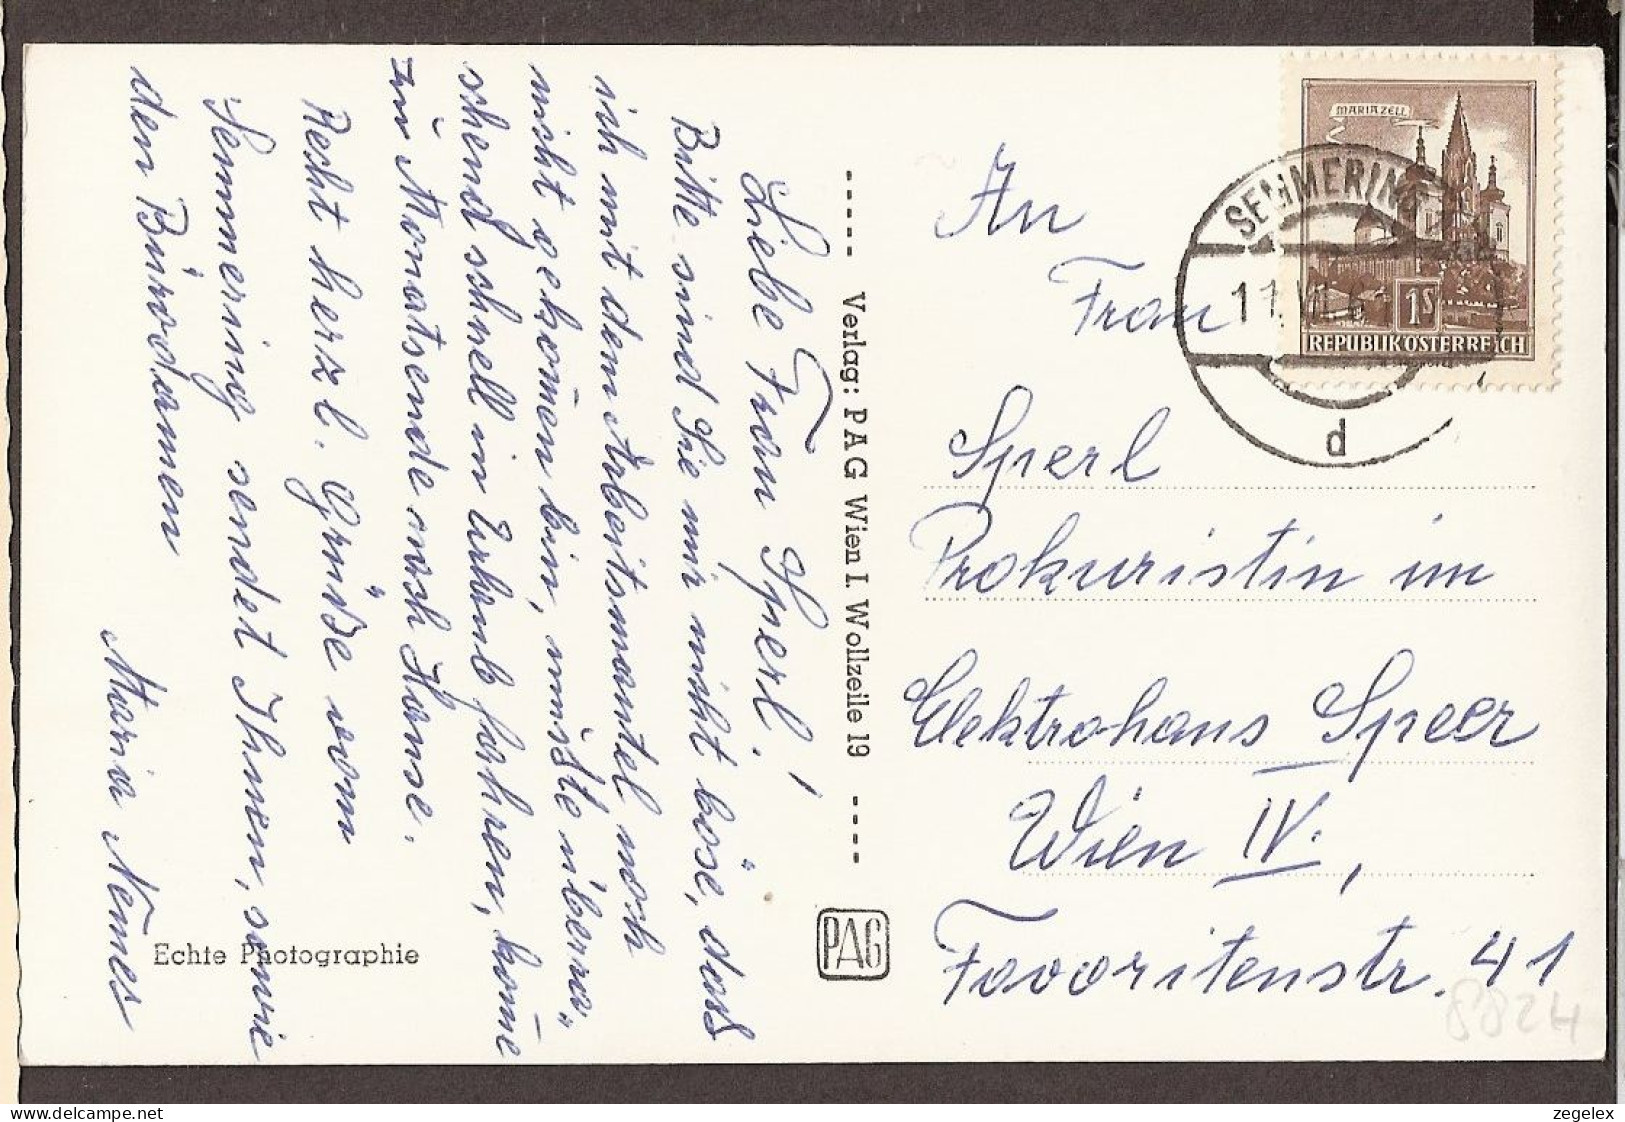 Liebe Frau Sperl!
Bitte sind Sie mir nicht böse, dass
ich mit dem Arbeitsmantel noch
nicht gekom̄en bin, müsste überra„
schend schnell in Urlaub fahren, kom̄e
zu Monatsende nach Hause.
Recht herzl. Grüße vom
Semmering sendet Ihnen, sowie
den Bürodamen
Maria Nemes
Echte Photographie
Verlag: PAG Wien I. Wollzeile 19
PAG
MARIAZELL
1S
REPUBLIK ÖSTERREICH
SEMMERING
d
An
Frau
Sperl
Prokuristin im
Elektrohaus Speer
Wien IV.,
Favoritenstr. 41
8824
delcampe.net
zegelex